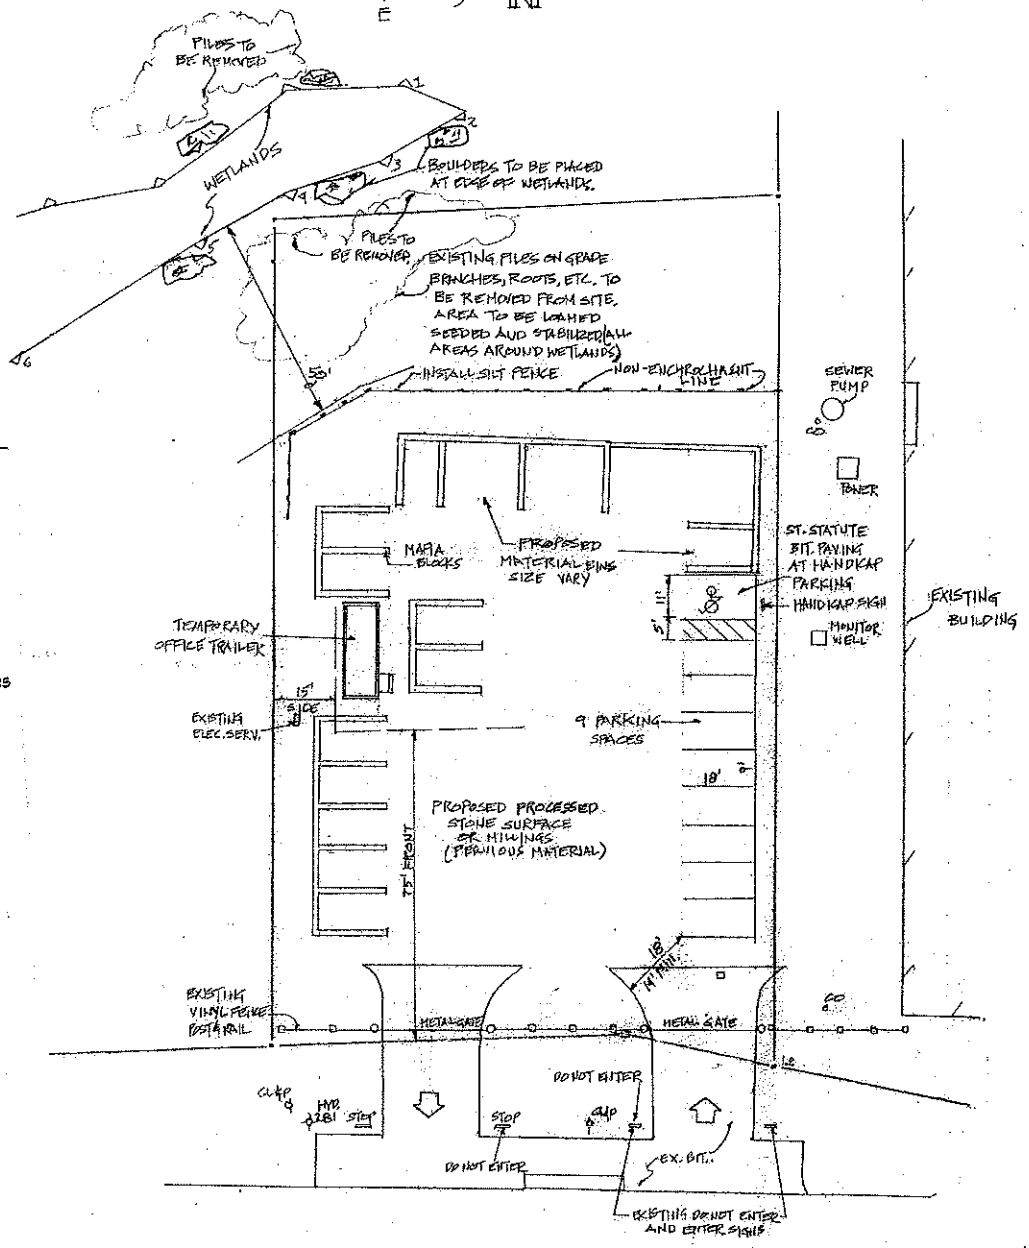 E
N
PILES TO
BE REMOVED
1
2
WETLANDS
3
BOULDERS TO BE PLACED
AT EDGE OF WETLANDS.
4
PILES TO
BE REMOVED
5
EXISTING PILES ON GRADE
BRANCHES, ROOTS, ETC. TO
BE REMOVED FROM SITE.
AREA TO BE LOAMED
SEEDED AND STABILIZED (ALL
AREAS AROUND WETLANDS)
6
50'
INSTALL SILT FENCE
NON-ENCHROCHMENT
LINE
SEWER
PUMP
POWER
MAFIA
BLOCKS
PROPOSED
MATERIAL BINS
SIZE VARY
ST. STATUTE
BIT. PAVING
AT HANDICAP
PARKING
HANDICAP SIGN
11'
5'
EXISTING
BUILDING
MONITOR
WELL
TEMPORARY
OFFICE TRAILER
15'
SIDE
EXISTING
ELEC. SERV.
9 PARKING
SPACES
9'
18'
PROPOSED PROCESSED
STONE SURFACE
OR MILLINGS
(PERVIOUS MATERIAL)
75' FRONT
18'
14' MIN.
EXISTING
VINYL FENCE
POST & RAIL
METAL GATE
METAL GATE
CO
CL&P
HYD.
281
STOP
STOP
DO NOT ENTER
CL&P
DO NOT ENTER
EX. BIT.
EXISTING DO NOT ENTER
AND ENTER SIGNS